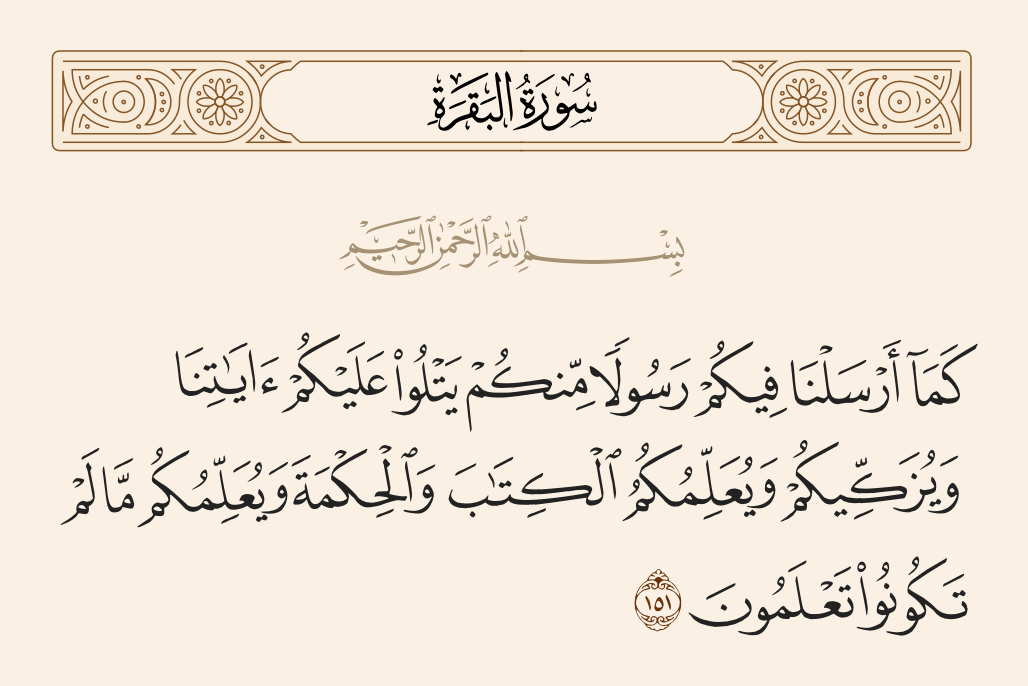 سُورَةُ البَقَرَةِ
بِسْمِ ٱللَّهِ ٱلرَّحْمَٰنِ ٱلرَّحِيمِ
كَمَآ أَرْسَلْنَا فِيكُمْ رَسُولًا مِّنكُمْ يَتْلُوا۟ عَلَيْكُمْ ءَايَـٰتِنَا
وَيُزَكِّيكُمْ وَيُعَلِّمُكُمُ ٱلْكِتَـٰبَ وَٱلْحِكْمَةَ وَيُعَلِّمُكُم مَّا لَمْ
تَكُونُوا۟ تَعْلَمُونَ ١٥١